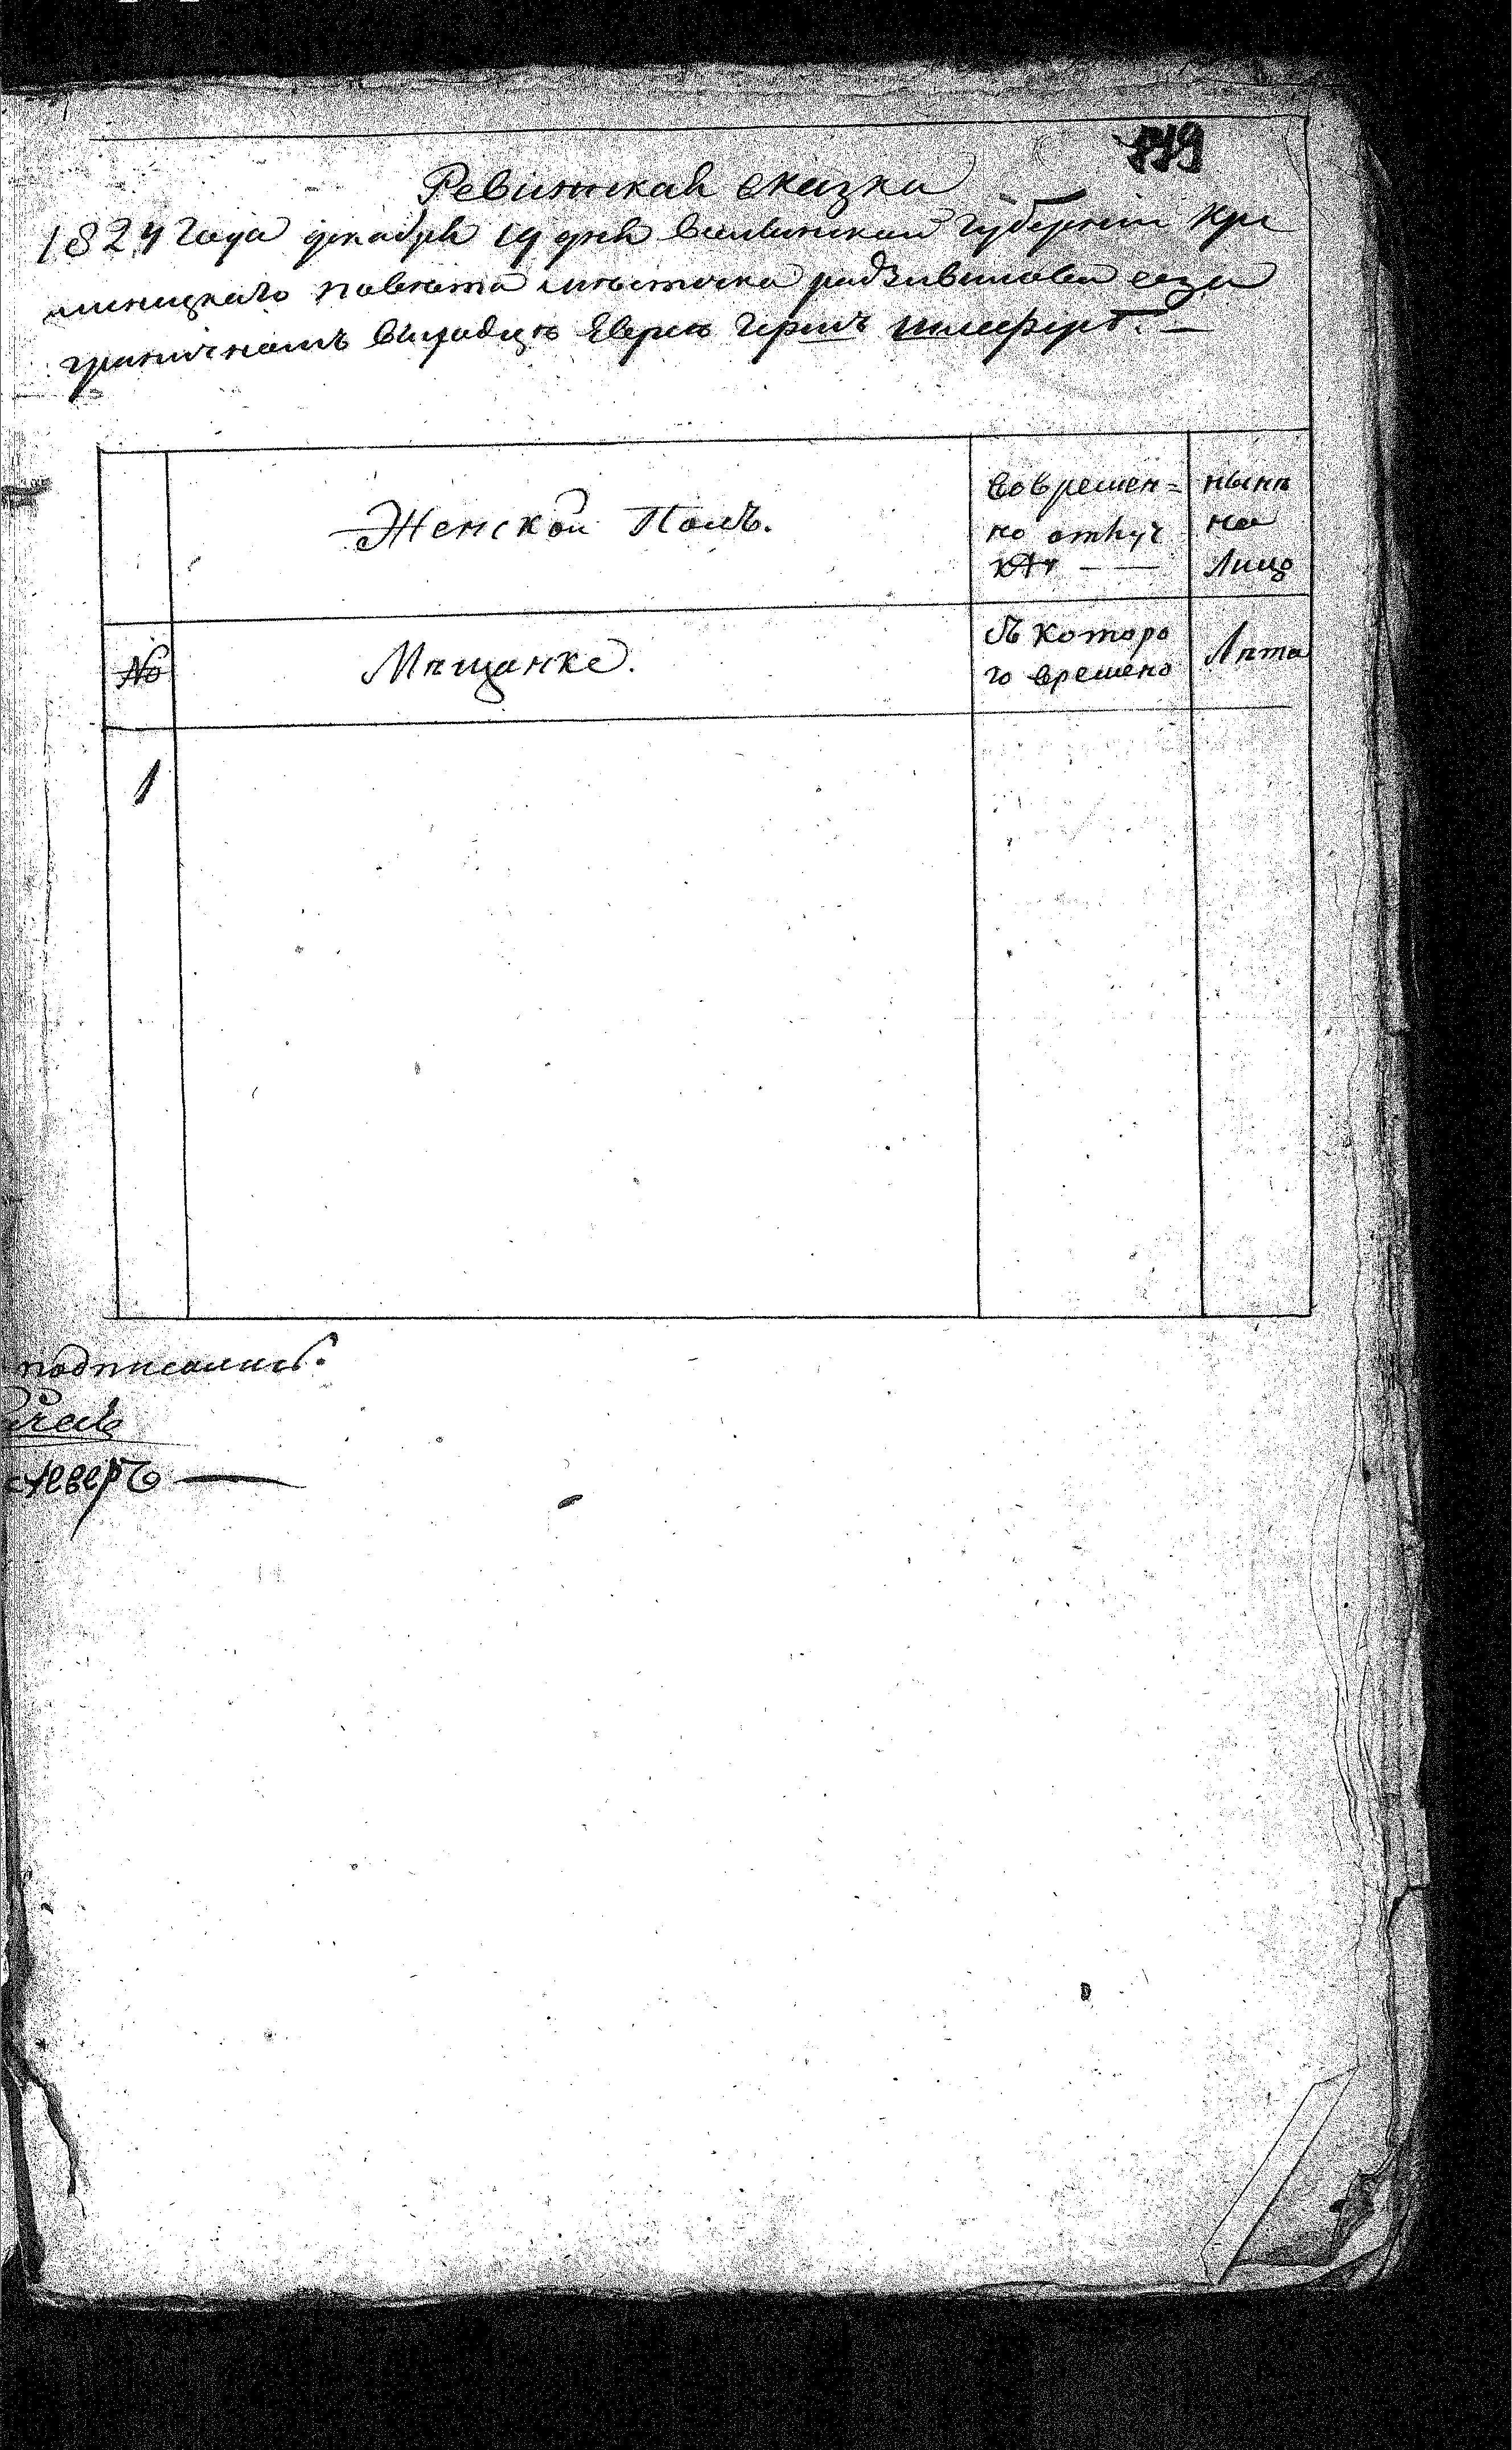 719
Ревижская сказка
1824 года декабря 19 дня Волынской губернии Кре
менецкаго повета местечка радзивилова соза
граничномъ выходцѣ Евреѣ Гершъ
Женской Полъ.
Вовремен=
но отлуч
кѣ — —
нынѣ
на
Лицо
№
Мѣщанке.
Съ которо
го времено
Лѣта
1
подписались: